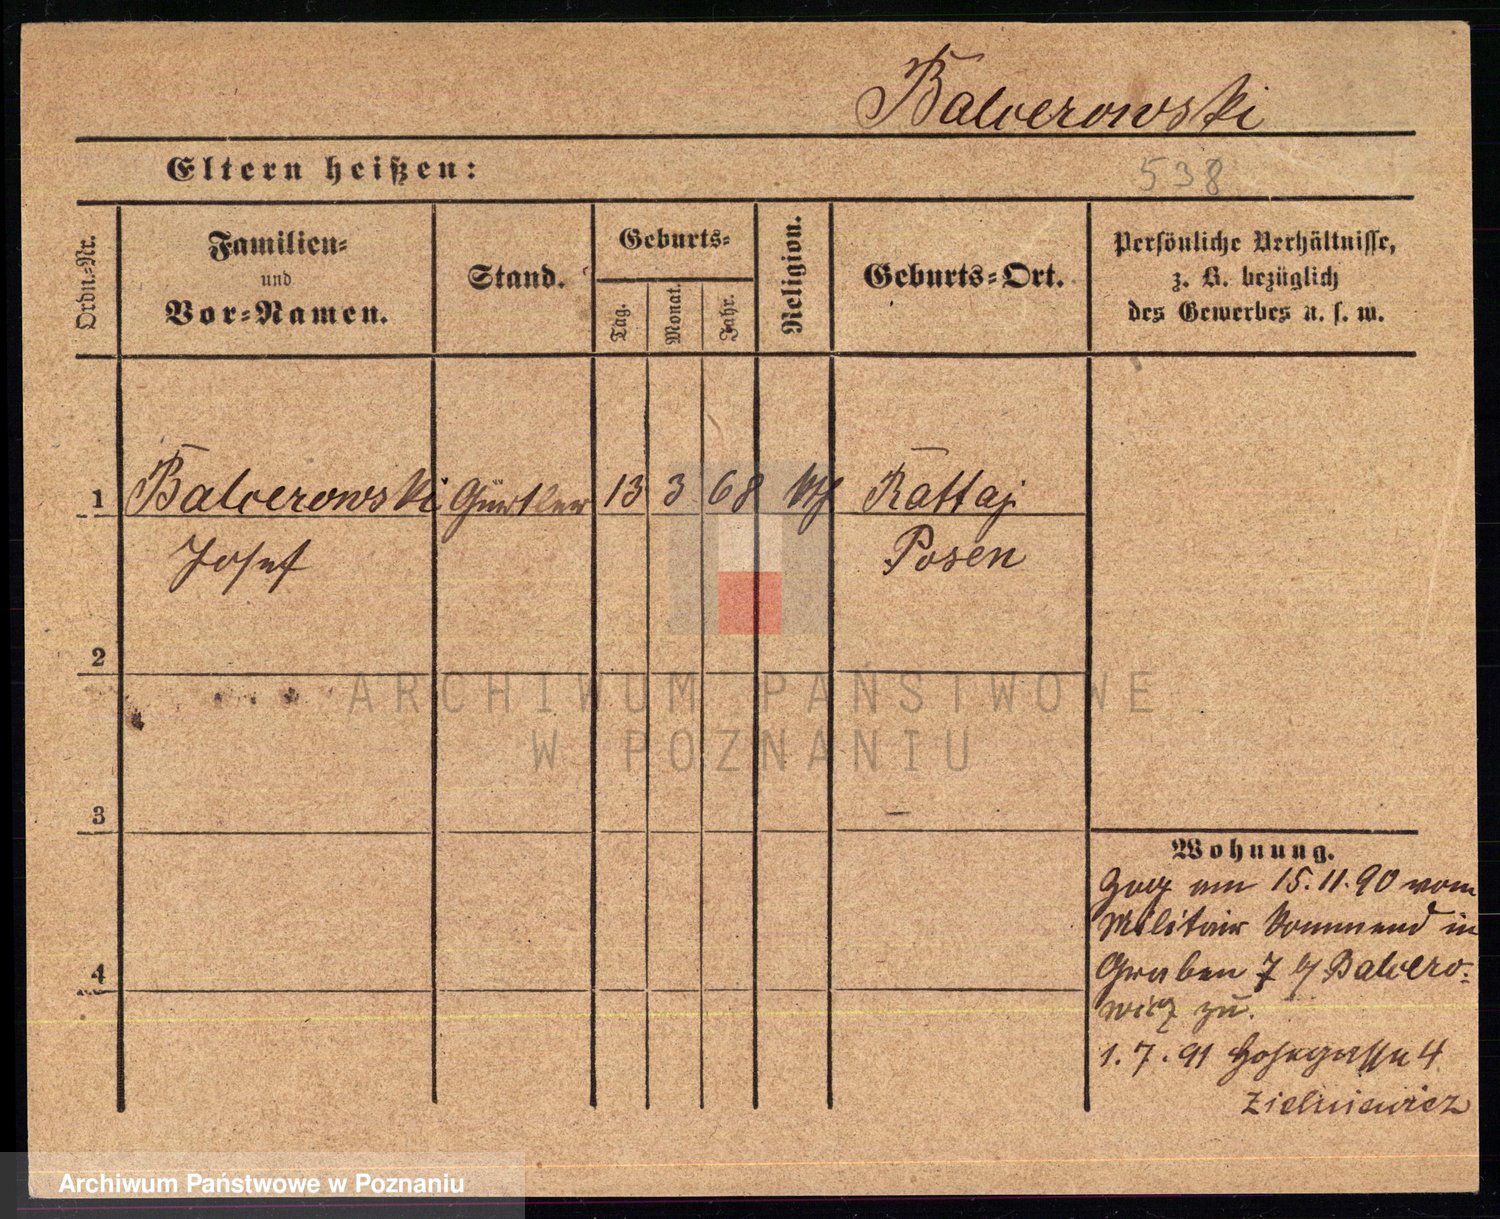 Balcerowski
Eltern heißen:
538
Ordn.-Nr.
Familien-
und
Vor-Namen.
Stand.
Geburts-
Tag.
Monat.
Jahr.
Religion.
Geburts-Ort.
Persönliche Verhältnisse,
z. B. bezüglich
des Gewerbes u. s. w.
1 Balcerowski Gürtler 13 3 68 Rattaj
Josef Posen
2
ARCHIWUM PAŃSTWOWE
W POZNANIU
3
4
Wohnung.
Zog am 15.11.90 vom
Militair Kommand in
Graben 7 Balcero-
wicz zu.
1.7.91 4
Zielniewicz
Archiwum Państwowe w Poznaniu